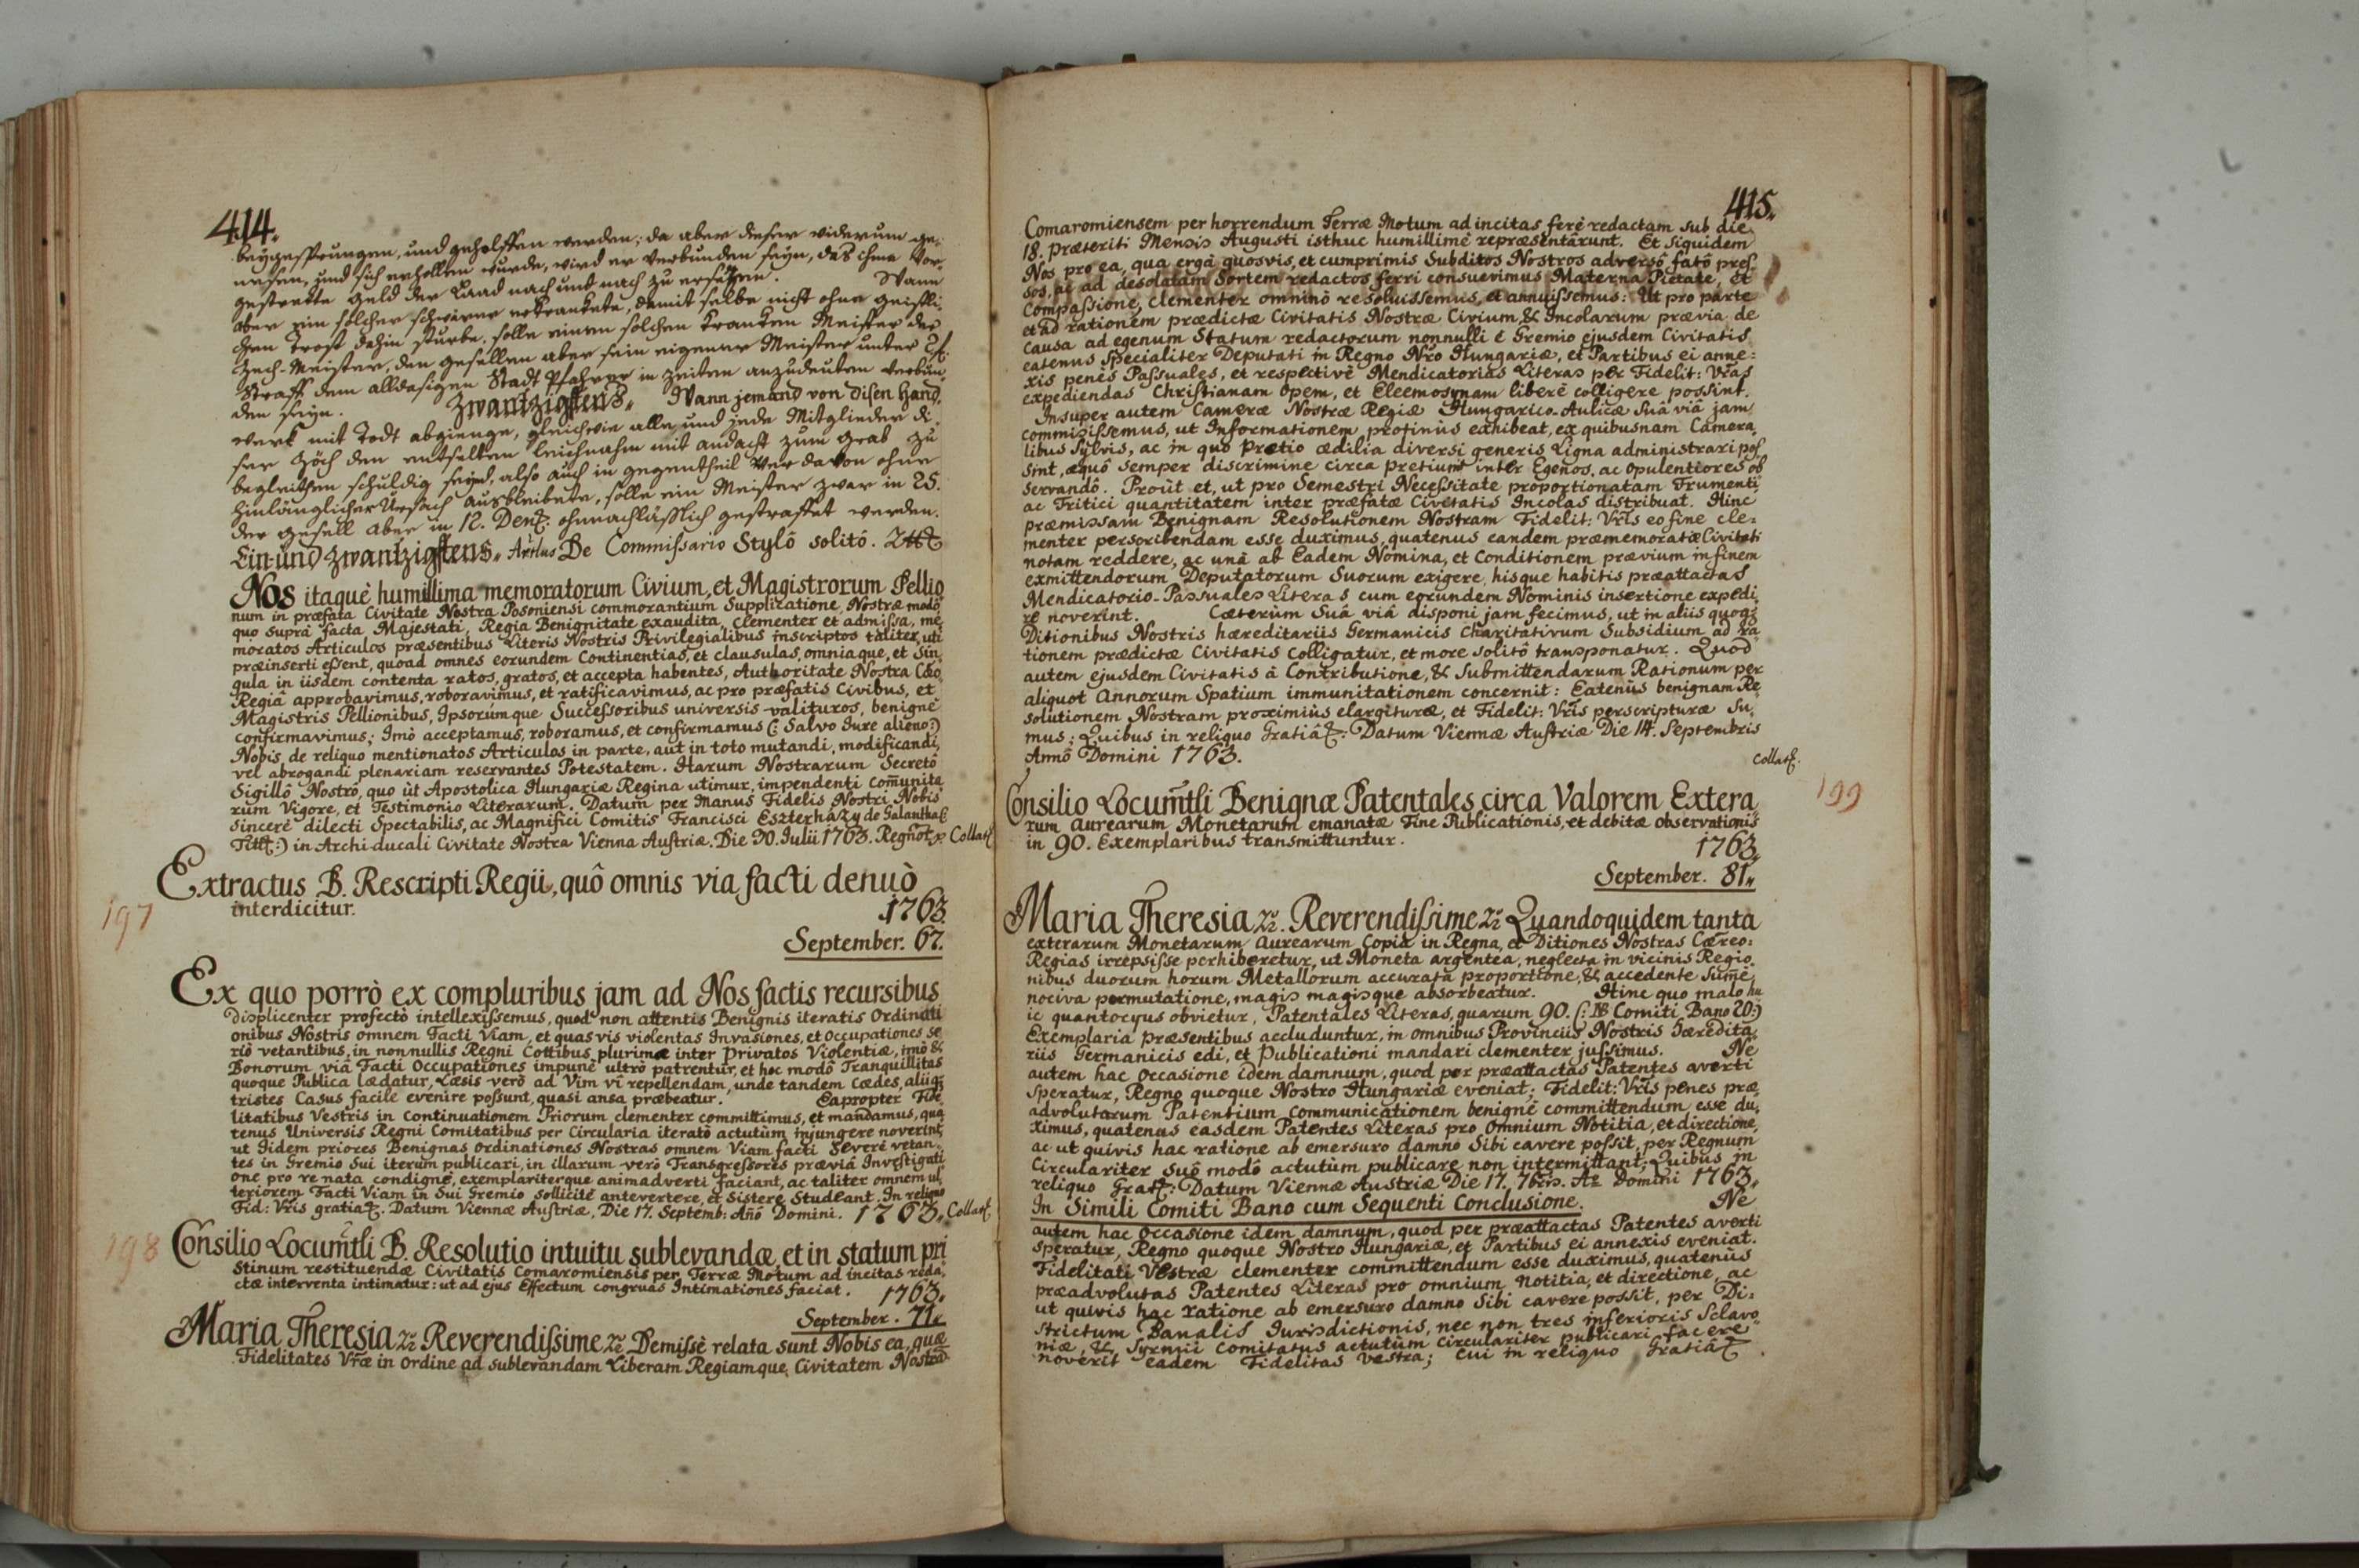 414.
beygesprungen, und geholffen werden; da aber dieser widerum ge-
nesen, und sich erhollen wurde, wird er verbunden seyn, das ihme vor-
gestrekte Geld der Laad nach und nach zu ersetzen. Wann
aber ein solcher schwerer erkrankete, damit selbe nicht ohne geistli-
chen Trost dahin sturbe, solle einen solchen kranken Meister der
Zech-Meister, den gesellen aber sein eigener Meister unter
Straff dem alldasigen Stadt Pfahrer in Zeiten anzudeuten verbun-
den seyn. Zwantzigstens. Wann jemand von disen Hand,
werk mit Todt abgienge, gleichwie alle, und jede Mitglieder di-
ser Zöch den entselten leichnahm mit andacht zum Grab zu
begleithen schuldig seynd, also auch in gegentheil wer davon ohne
hinlänglicher Ursach ausbleibete, solle ein Meister zwar in 25.
der gesell aber in 12. Den: ohnnachlässlich gestraffet werden.
Ein und zwantzigstens. Artlus De Commissario Stylô solitô.
Nos itaquè humillima memoratorum Civium, et Magistrorum Pellio
num in præfata Civitate Nostra Posoniensi commorantium Supplicatione, Nostræ modô,
quo supra facta Majestati, Regia Benignitate exaudita, clementer et admissa, me
moratos Articulos præsentibus Literis Nostris Privilegialibus inscriptos taliter, uti
præinserti essent, quoad omnes eorundem Continentias, et clausulas, omniaque, et Sin,
gula in iisdem contenta ratos, gratos, et accepta habentes, Authoritate Nostra Cæo
Regiâ approbavimus, roboravimus, et ratificavimus, ac pro præfatis Civibus, et
Magistris Pellionibus, Ipsorumque Successoribus universis valituros, benigne
confirmavimus; Imò acceptamus, roboramus, et confirmamus (: Salvo Jure alieno:)
Nobis de reliquo mentionatos Articulos in parte, aut in toto mutandi, modificandi,
vel abrogandi plenariam reservantes Potestatem. Harum Nostrarum Secretô
Sigillô Nostrô, quo ùt Apostolica Hungariæ Regina utimur, impendenti com̃unita
rum Vigore, et Testimonio Literarum. Datum per Manus Fidelis Nostri Nobis
sincerè dilecti Spectabilis, ac Magnifici Comitis Francisci Eszterházy de Galantha (:
Titt:) in Archi-ducali Civitate Nostra Vienna Austriæ. Die 20. Julii 1763. Collat:
Extractus B. Rescripti Regii, quô omnis via facti denuò
197
interdicitur. 1763.
September. 67.
Ex quo porrò ex compluribus jam ad Nos factis recursibus
displicenter profectò intellexissemus, quod non attentis Benignis iteratis Ordinati
onibus Nostris omnem Facti Viam, et quas vis violentas Invasiones, et Occupationes se
riò vetantibus, in nonnullis Regni Cottibus plurimæ inter Privatos Violentiæ, imò &
Bonorum viâ Facti Occupationes impunè ultrò patrentur, et hoc modô Tranquillitas
quoque Publica lædatur, Læsis verò ad Vim vi repellendam, unde tandem Cædes, aliiq;
tristes Casus facile evenire possunt, quasi ansa præbeatur. Eapropter Fide
litatibus Vestris in Continuationem Priorum clementer committimus, et mandamus, qua
tenus Universis Regni Comitatibus per Circularia iteratò actutùm injungere noverint,
ut Iidem priores Benignas Ordinationes Nostras omnem Viam facti Severè vetan
tes in Gremio Sui iterum publicari, in illarum verò Transgressores præviâ Investigati
one pro re nata condignè, exemplariterque animadverti faciant, ac taliter omnem ul,
teriorem Facti Viam in Sui Gremio sollicitè antevertere, et Sistere Studeant. In reliquo
Fid: Vr̃is gratia. Datum Viennæ Austriæ, Die 17. Septemb: Añô Domini. 1763. Collat:
198 Consilio Locum̃tli B. Resolutio intuitu sublevandæ, et in statum pri
stinum restituendæ Civitatis Comaromiensis per Terræ Motum ad incitas reda,
ctæ interventa intimatur: ut ad ejus Effectum congruas Intimationes faciat. 1763.
September. 71.
Maria Theresia &. Reverendissime &. Demissè relata sunt Nobis ea, quæ
Fidelitates Vr̃æ in Ordine ad sublevandam Liberam Regiamque Civitatem Nostra
415.
Comaromiensem per horrendum Terræ Motum ad incitas ferè redactam sub die
18. præteriti Mensis Augusti isthuc humillimè repræsentârunt. Et siquidem
Nos pro ea, qua ergà quosvis, et cumprimis Subditos Nostros adversô fatô pres-
sos, ac ad desolatam Sortem redactos ferri consuevimus Materna Pietate, et
Compassione, clementer omninò resolvissemus, et annuissemus: Ut pro parte
et ad rationem prædictæ Civitatis Nostræ Civium, & Incolarum prævia de
causa ad egenum Statum redactorum nonnulli è Gremio ejusdem Civitatis
eatenus Specialiter Deputati in Regno Nr̃o Hungariæ, et Partibus ei anne:
xis penès Passuales, et respectivè Mendicatorias Literas per Fidelit: Vr̃as
expediendas Christianam Opem, et Eleemosynam liberè colligere possint.
Insuper autem Cameræ Nostræ Regiæ Hungarico-Aulicæ Suâ viâ jam
commisissemus, ut Informationem protinùs exhibeat, ex quibusnam Camera,
libus Sylvis, ac in quo Prætio ædilia diversi generis Ligna administrari pos
sint, æquô semper discrimine circa pretium inter Egenos, ac Opulentiores ob
servandô. Proùt et, ut pro Semestri Necessitate proportionatam Frumenti,
ac Tritici quantitatem inter præfatæ Civitatis Incolas distribuat. Hinc
præmissam Benignam Resolutionem Nostram Fidelit: Vr̃is eo fine cle:
menter perscribendam esse duximus, quatenus eandem præmemoratæ Civitati
notam reddere, ac unà ab Eadem Nomina, et Conditionem prævium in finem
exmittendorum Deputatorum Suorum exigere, hisque habitis præattactas
Mendicatorio-Passuales Literas cum eorundem Nominis insertione expedi,
re noverint. Cæterùm Suâ viâ disponi jam fecimus, ut in aliis quoq;
Ditionibus Nostris hæreditariis Germanicis Charitativum Subsidium ad ra
tionem prædictæ Civitatis Colligatur, et more solitô transponatur. Quod
autem ejusdem Civitatis à Contributione, & Submittendarum Rationum per
aliquot Annorum Spatium immunitationem concernit: Eatenùs benignam Re,
solutionem Nostram proximiùs elargituræ, et Fidelit: Vr̃is perscripturæ Su,
mus; Quibus in reliquo Gratiâ: Datum Viennæ Austriæ Die 14. Septembris
Annô Domini 1763.
Collat:
Consilio Locum̃tli Benignæ Patentales circa Valorem Extera 199
rum Aurearum Monetarum emanatæ Fine Publicationis, et debitæ observationis
in 90. Exemplaribus transmittuntur. 1763.
September. 81.
Maria Theresia &. Reverendissime & Quandoquidem tanta
exterarum Monetarum Aurearum Copia in Regna, et Ditiones Nostras Cæreo:
Regias irrepsisse perhiberetur, ut Moneta argentea, neglecta in vicinis Regio,
nibus duorum horum Metallorum accurata proportione, & accedente Sum̃è
nociva permutatione, magis magisque absorbeatur. Hinc quo malo hu
ic quantocyus obvietur, Patentales Literas, quarum 90. (: Comiti Bano 20:)
Exemplaria præsentibus accluduntur, in omnibus Provinciis Nostris Hæredita,
riis Germanicis edi, et Publicationi mandari clementer jussimus. Ne
autem hac Occasione idem damnum, quod per præattactas Patentes averti
speratur, Regno quoque Nostro Hungariæ eveniat; Fidelit: Vr̃is penes præ,
advolutarum Patentium communicationem benignè committendum esse du,
ximus, quatenus easdem Patentes Literas pro Omnium Notitia, et directione,
ac ut quivis hac ratione ab emersuro damno Sibi cavere possit, per Regnum
Circulariter Suô modô actutùm publicare non intermittant; Quibus in
reliquo Grat: Datum Viennæ Austriæ Die 17. 7bris. Aº Domini 1763.
In Simili Comiti Bano cum Sequenti Conclusione. Ne
autem hac Occasione idem damnum, quod per præattactas Patentes averti
speratur, Regno quoque Nostro Hungariæ, et Partibus ei annexis eveniat.
Fidelitati Vestræ clementer committendum esse duximus, quatenùs
præadvolutas Patentes Literas pro omnium notitia, et directione, ac
ut quivis hac ratione ab emersuro damno Sibi cavere possit, per Di:
strictum Banalis Jurisdictionis, nec non tres inferioris Sclavo
niæ, & Syrmii Comitatus actutùm circulariter publicari facere
noverit eadem Fidelitas Vestra; Cui in reliquo Gratiâ